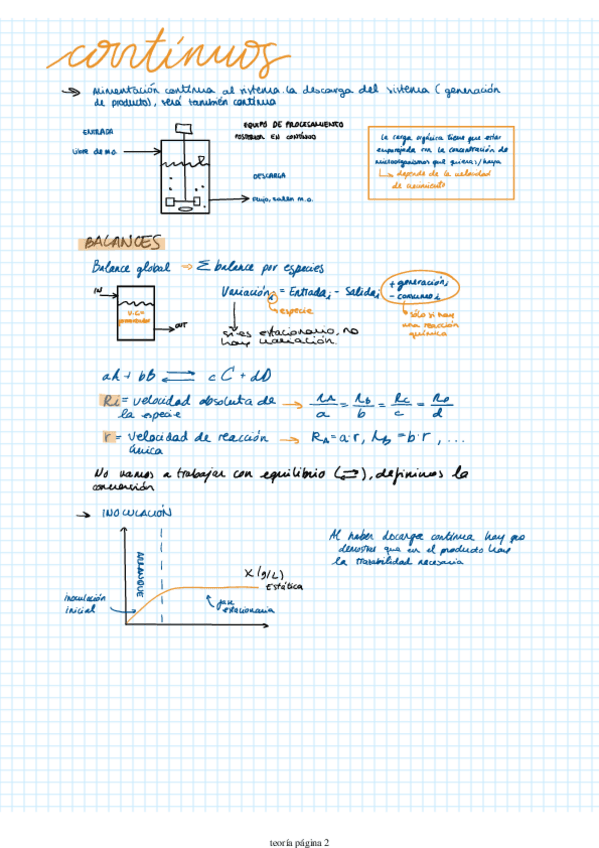 continuos
→ Alimentación continua al sistema. la descarga del sistema (generación
de producto), será también continua
ENTRADA
libre de m.o.
EQUIPO DE PROCESAMIENTO
POSTERIOR EN CONTINUO
DESCARGA
Flujo, salen m.o.
la carga orgánica tiene que estar
emparejada con la concentración de
microorganismos que quieras/haya
↳ depende de la velocidad
de crecimiento
BALANCES
Balance global → Σ balance por especies
IN
OUT
V.C=
Variación i = Entrada i - Salida i + generación i
- consumo i
especie
sólo si hay
una reacción
química
si es estacionario, no
hay variación.
aA + bB ⇄ cC + dD
Ri = velocidad absoluta de → RA/a = RB/b = RC/c = RD/d
la especie
r = velocidad de reacción → RA = a·r, RB = b·r, ...
única
No vamos a trabajar con equilibrio (⇄), definimos la
conversión
→ INOCULACIÓN
ARRANQUE
X (g/L)
Estática
inoculación
inicial
fase
estacionaria
Al haber descarga continua hay que
demostrar que en el producto hay
la trazabilidad necesaria
teoría página 2